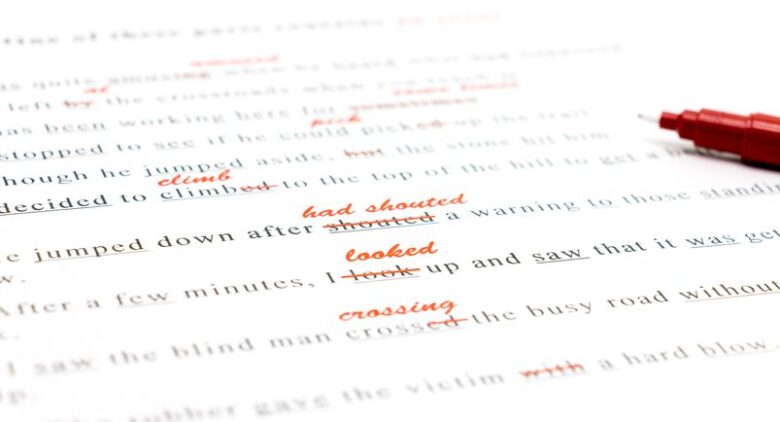 One of these parts
amused
as quite amusing when he heard what had happened
at
left by the crossroads when you reach it
has been working here for sometimes
pick
stopped to see if he could picked up the trail
though he jumped aside, but the stone hit him
climb
decided to climbed to the top of the hill to get a
had shouted
jumped down after shouted a warning to those standin
w.
looked
After a few minutes, I look up and saw that it was get
crossing
I saw the blind man crossed the busy road without
The robber gave the victim with a hard blow.